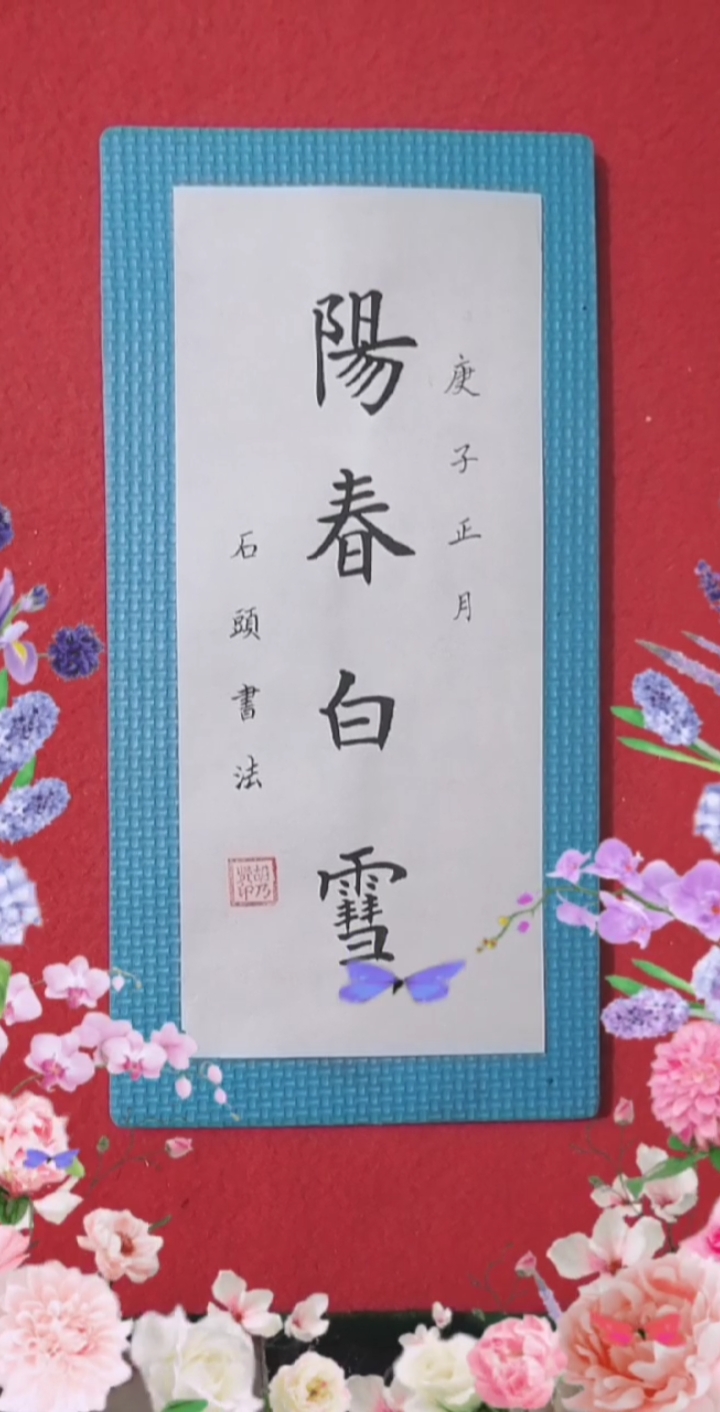 庚子正月
陽春白雪
石頭書法